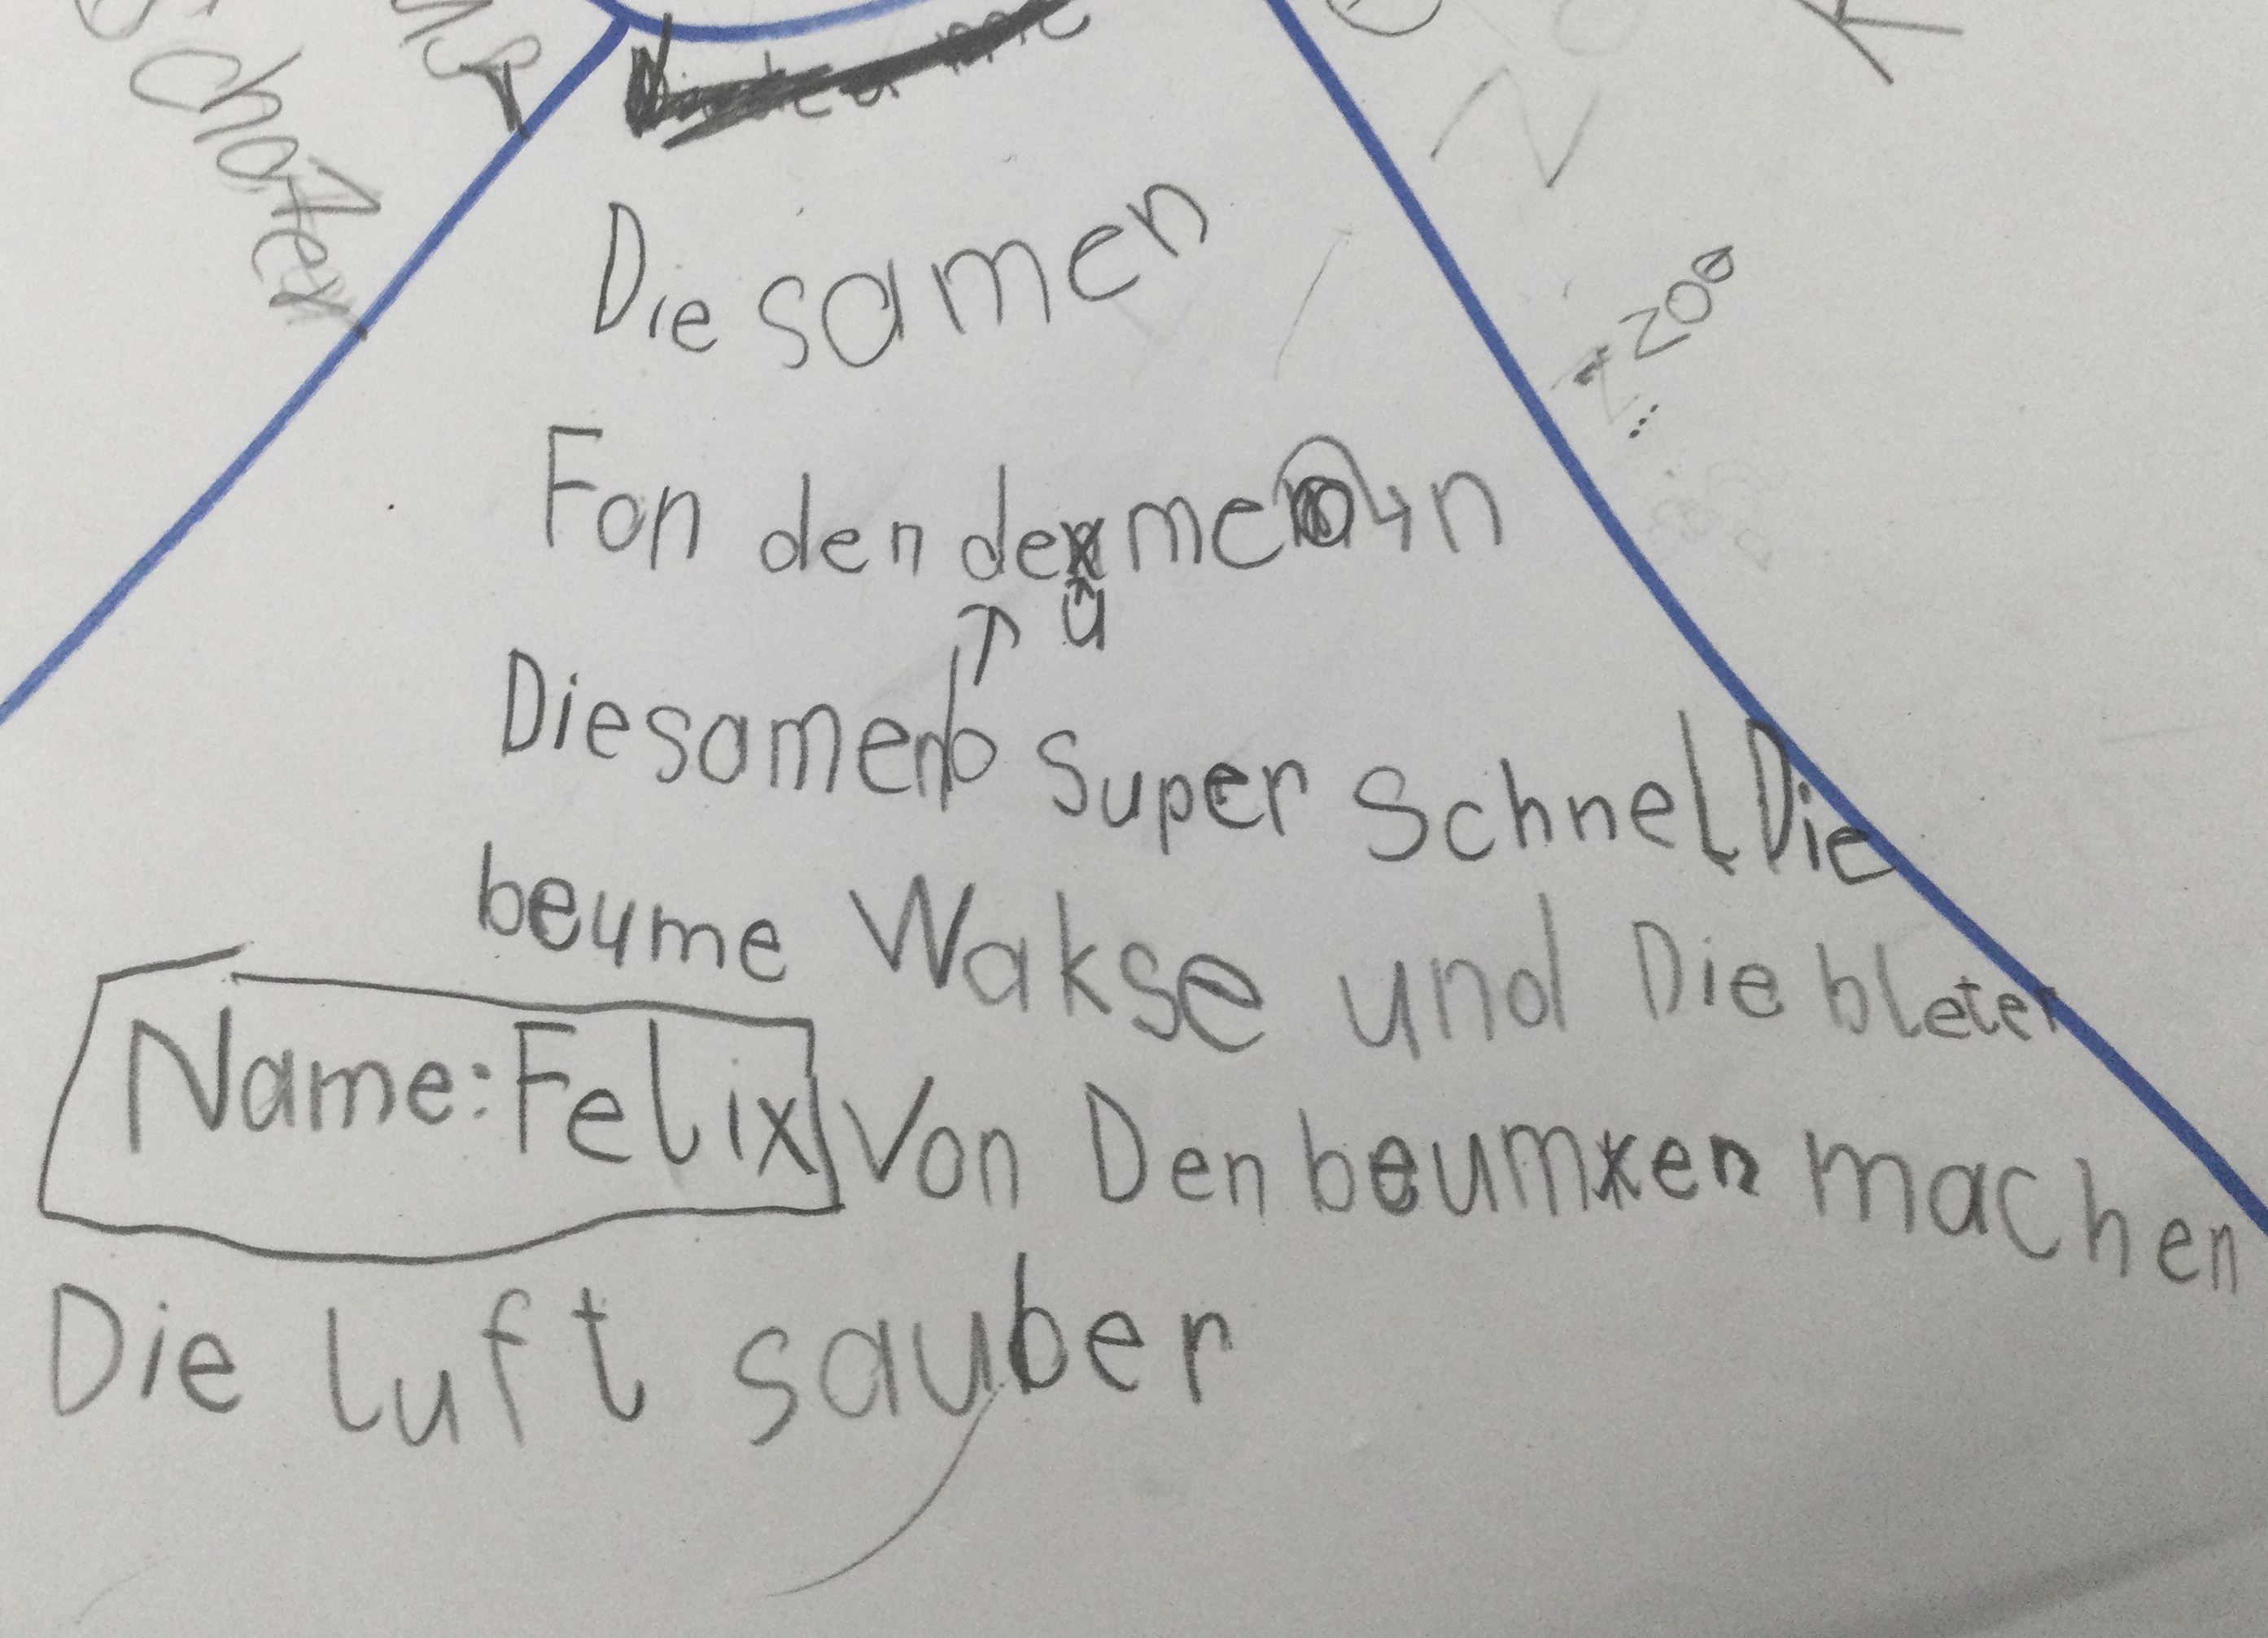 Schotter
Die samen
Fon den deumen
Die samen super schnel Die
beume Wakse und Die bleter
Name: Felix
Von Den beumen machen
Die luft sauber
200